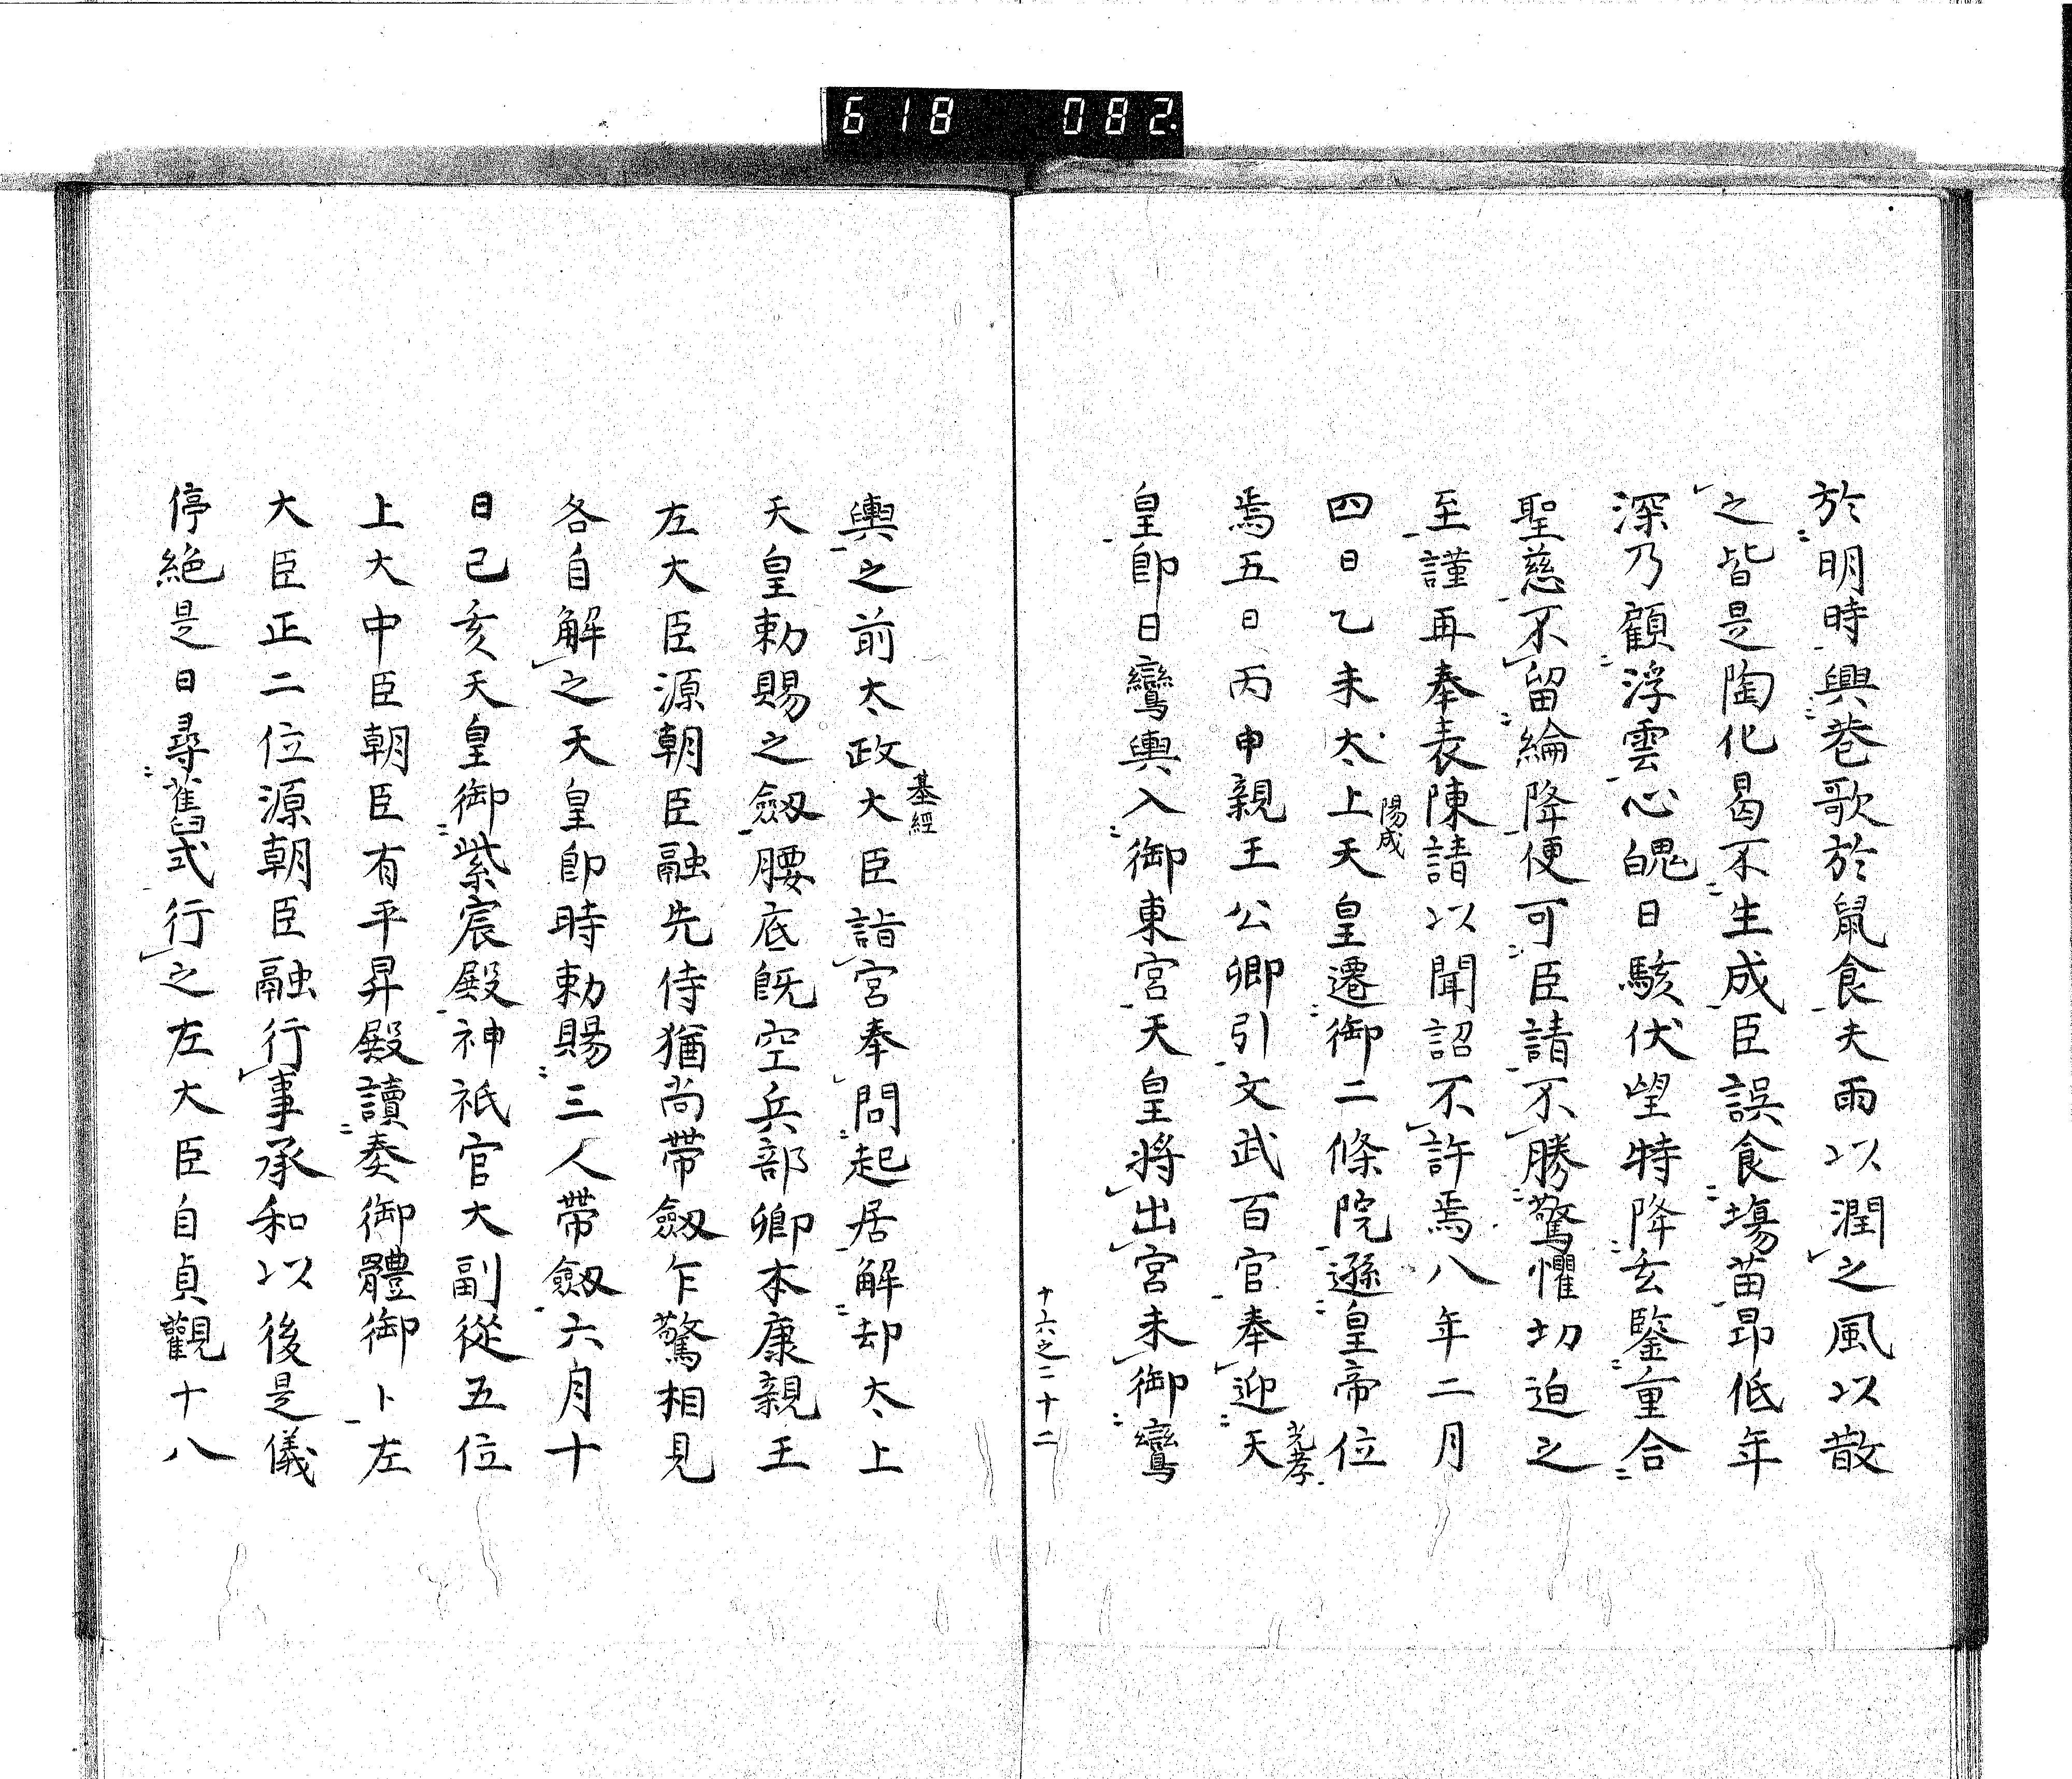 618 082
於明時興巷歌於鼠食夫雨以潤之風以散
之皆是陶化曷不生成臣誤食塲苗昂低年
深乃顧浮雲心魄日駭伏望特降玄鑒重合
聖慈不留綸降便可臣請不勝驚懼切迫之
至謹再奉表陳請以聞詔不許焉八年二月
四日乙未太上天皇遷御二條院遜皇帝位
陽成
焉五日丙申親王公卿引文武百官奉迎天
光孝
皇卽日鸞輿入御東宮天皇將出宮未御鸞
十六之二十二
輿之前太政大臣詣宮奉問起居解却太上
基經
天皇勅賜之劔腰底旣空兵部卿本康親王
左大臣源朝臣融先侍猶尚帶劔乍驚相見
各自解之天皇卽時勅賜三人帶劔六月十
日己亥天皇御紫宸殿神祇官大副從五位
上大中臣朝臣有平昇殿讀奏御體御卜左
大臣正二位源朝臣融行事承和以後是儀
停絶是日尋舊式行之左大臣自貞觀十八